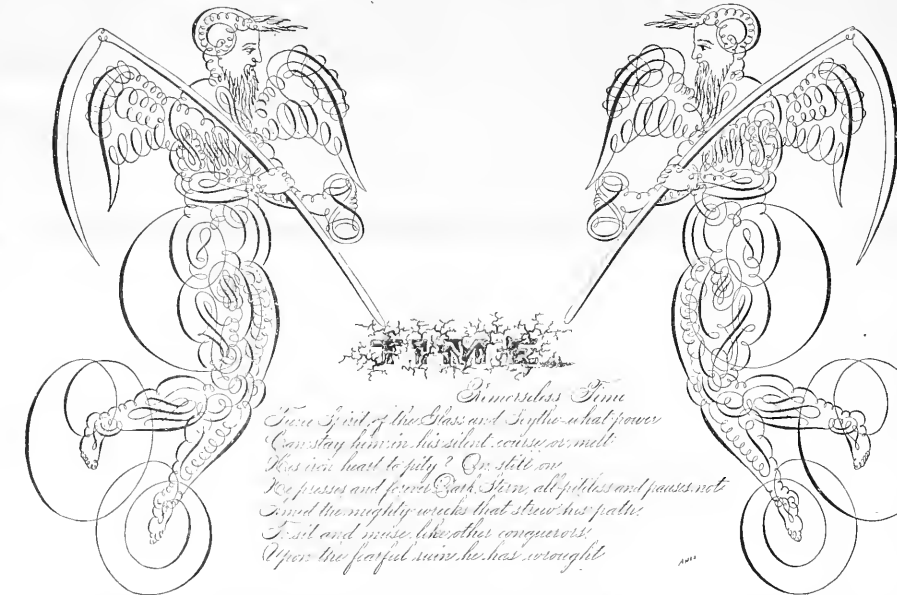 TIME
Remorseless Time
Fierce Spirit of the Glass and Scythe what power
Can stay him in his silent course, or melt
His iron heart to pity? On, still on
He presses and forever Dark, Stern, all pitiless and pauses not
Amid the mighty wrecks that strew his path,
To sit and muse, like other conquerors,
Upon the fearful ruin he has wrought